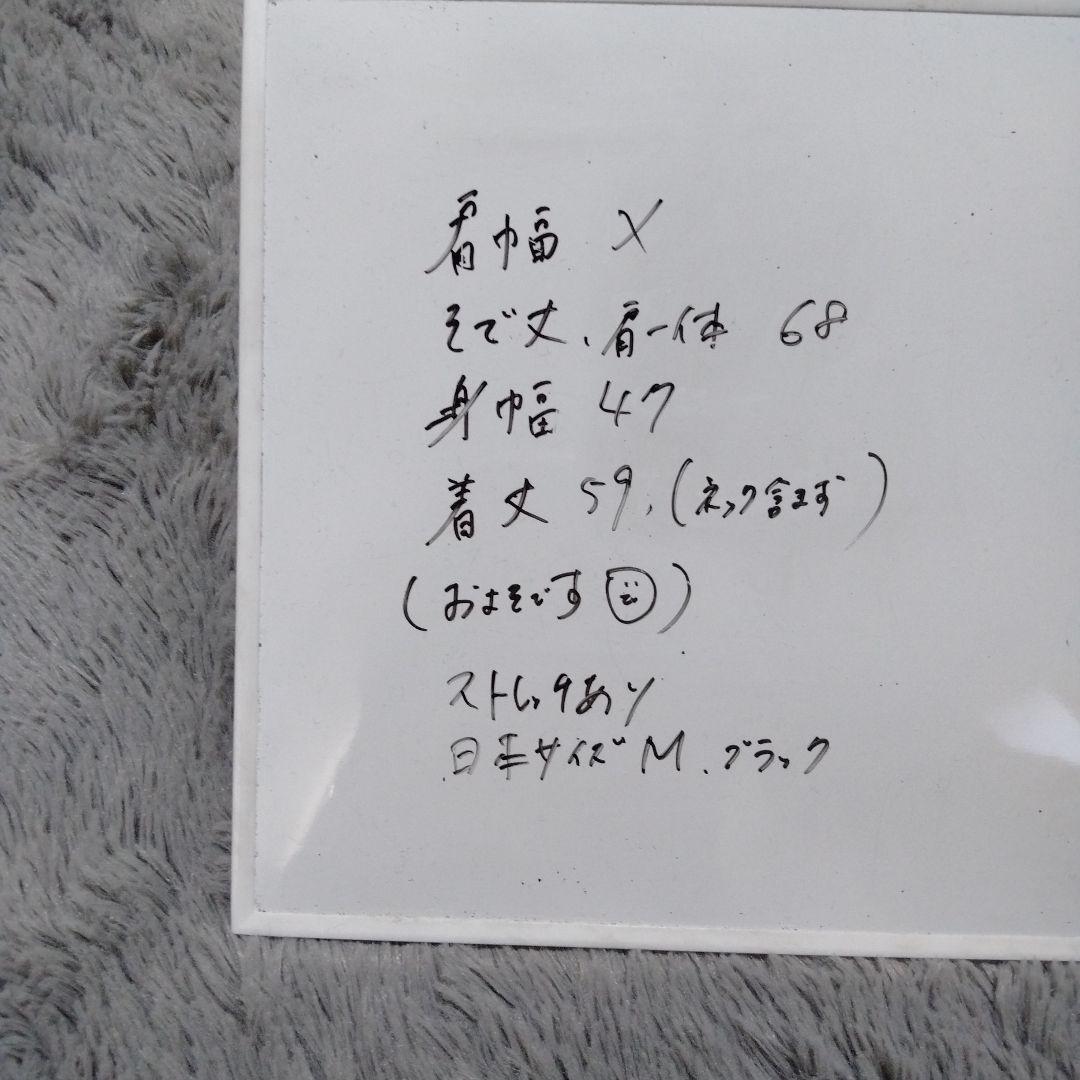 肩幅 X
そで丈、肩一体 68
身幅 47
着丈 59、(ネック含まず)
(およそです)
ストレッチあり
日本サイズM、ブラック